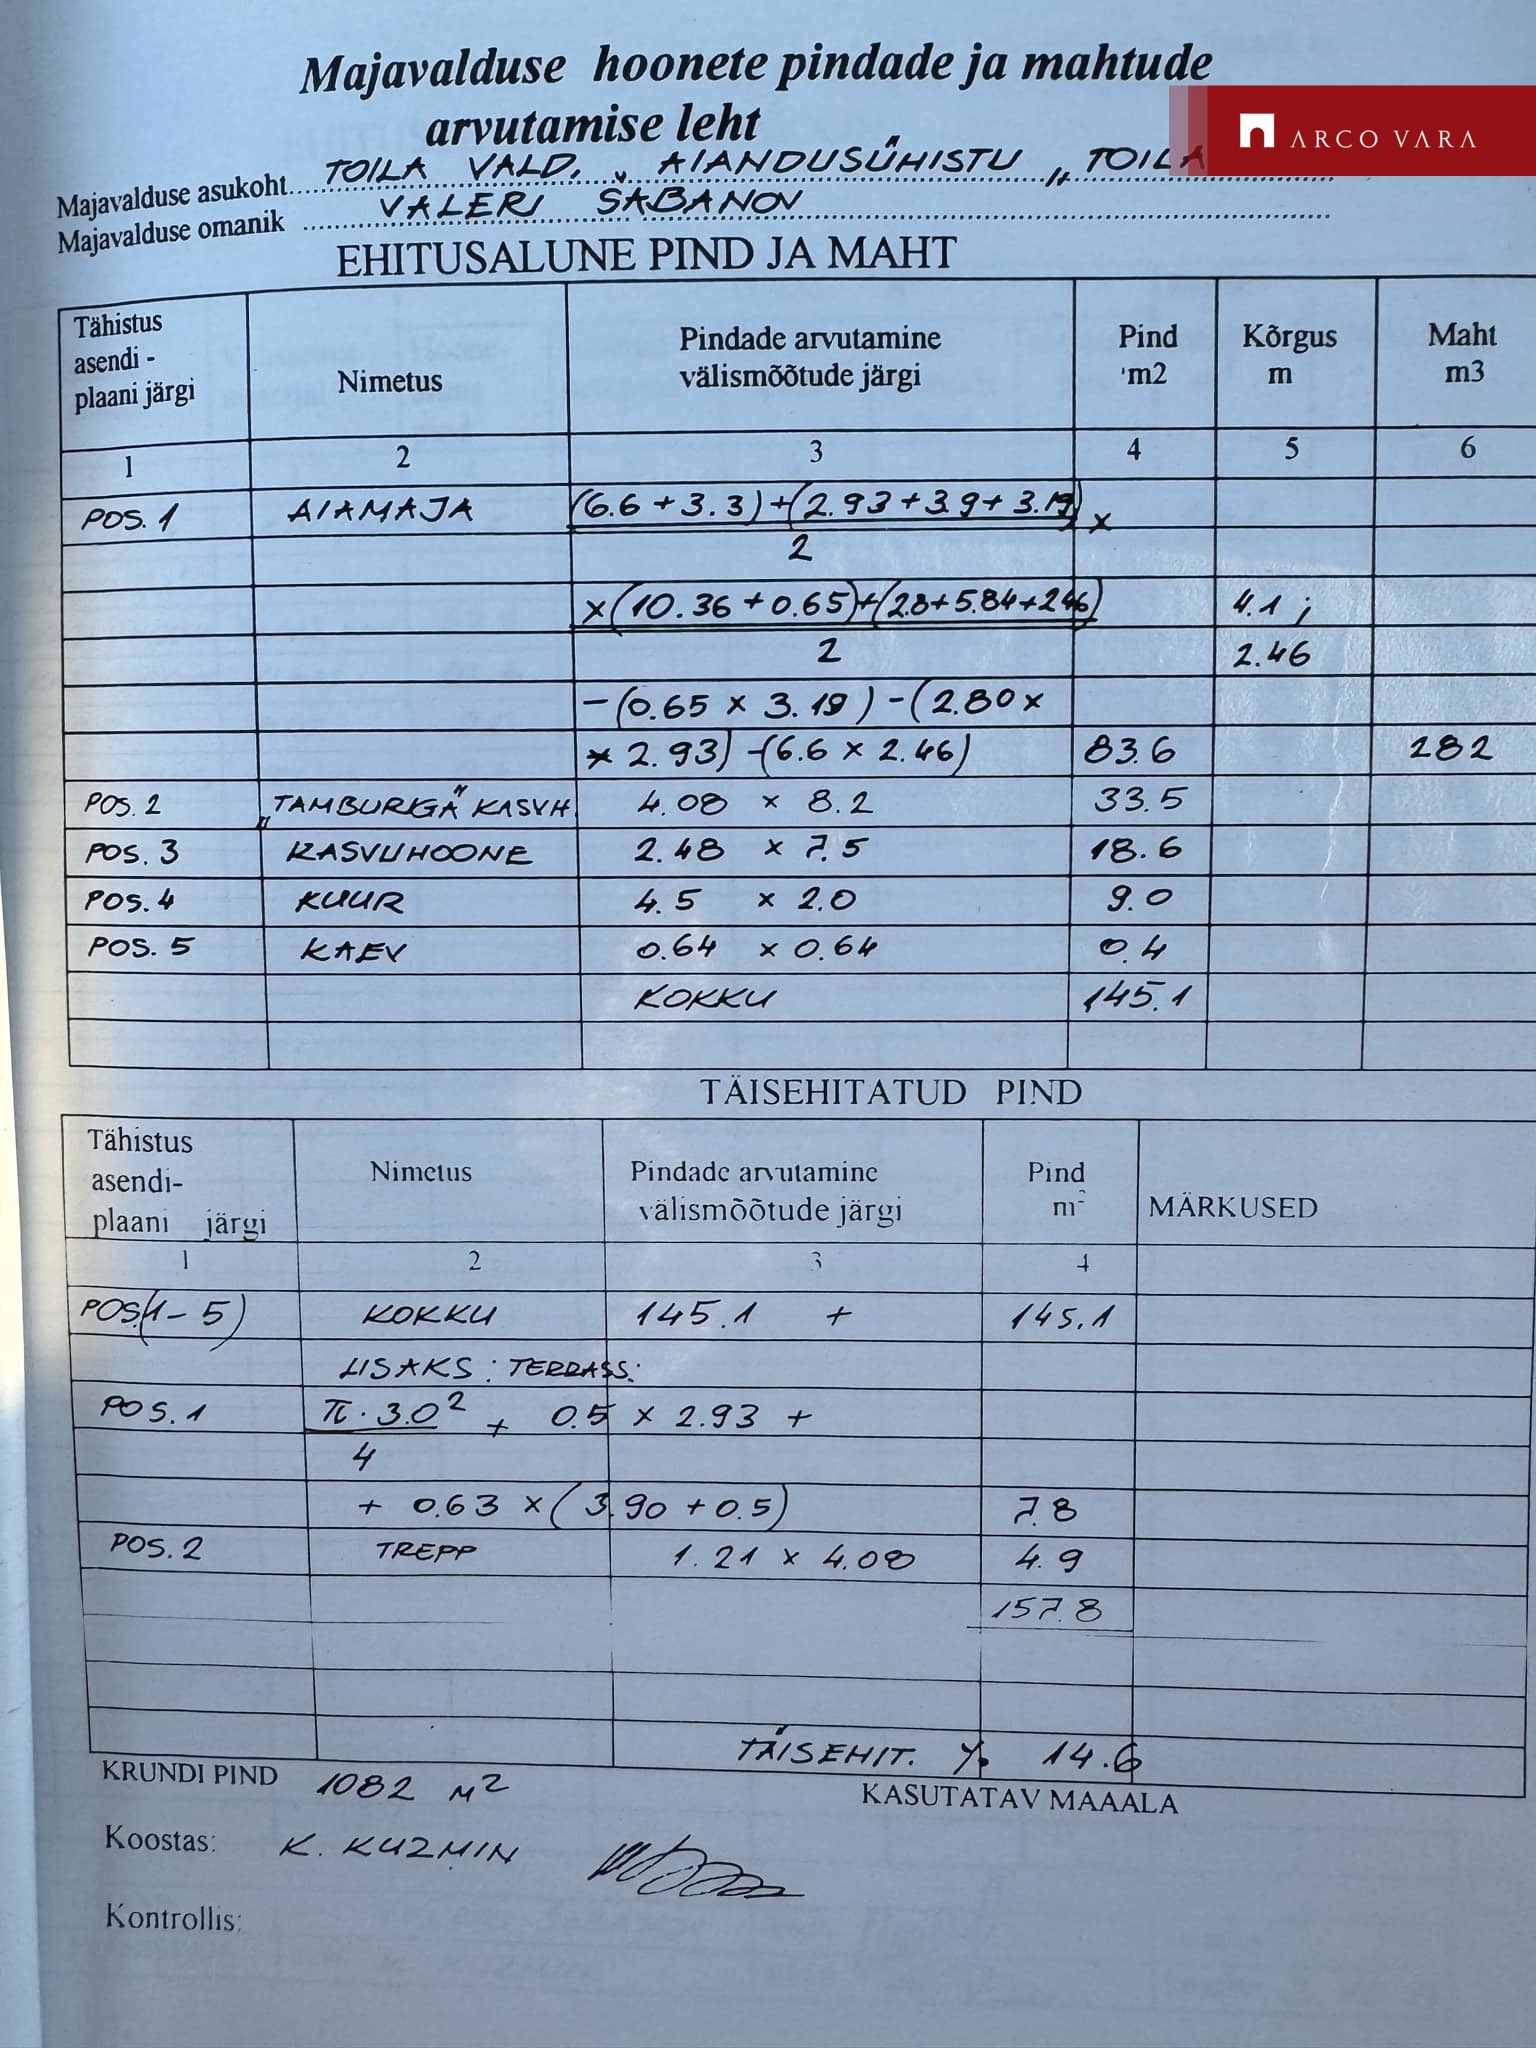 Majavalduse hoonete pindade ja mahtude
arvutamise leht
ARCO VARA
Majavalduse asukoht TOILA VALD, AIANDUSÜHISTU „TOILA
Majavalduse omanik VALERI ŠABANOV
EHITUSALUNE PIND JA MAHT
Tähistus asendi - plaani järgi Nimetus Pindade arvutamine välismõõtude järgi Pind m2 Kõrgus m Maht m3
1 2 3 4 5 6
POS. 1 AIAMAJA (6.6 + 3.3) + (2.93 + 3.9 + 3.19) x
2
x (10.36 + 0.65) + (2.8 + 5.84 + 2.46) 4.1 ;
2 2.46
- (0.65 x 3.19) - (2.80 x
x 2.93) - (6.6 x 2.46) 83.6 282
POS. 2 „TAMBURIGA" KASVH. 4.08 x 8.2 33.5
POS. 3 KASVUHOONE 2.48 x 7.5 18.6
POS. 4 KUUR 4.5 x 2.0 9.0
POS. 5 KAEV 0.64 x 0.64 0.4
KOKKU 145.1
TÄISEHITATUD PIND
Tähistus asendi- plaani järgi Nimetus Pindade arvutamine välismõõtude järgi Pind m² MÄRKUSED
1 2 3 4
POS.(1-5) KOKKU 145.1 + 145.1
LISAKS : TERRASS:
POS. 1 π · 3.0² + 0.5 x 2.93 +
4
+ 0.63 x (3.90 + 0.5) 7.8
POS. 2 TREPP 1.21 x 4.08 4.9
157.8
TÄISEHIT. % 14.6
KRUNDI PIND 1082 M² KASUTATAV MAAALA
Koostas: K. KUZMIN
Kontrollis: